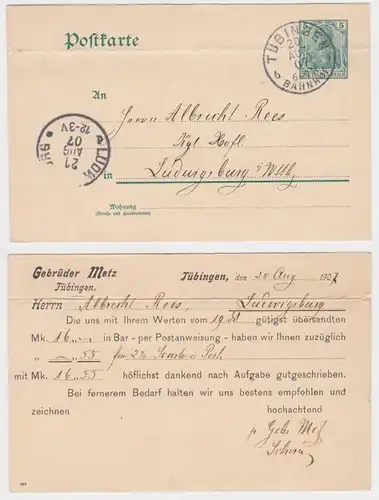 Postkarte
TÜBINGEN
20
AUG
07
BAHNHOF
b
5
An
Herrn Albrecht Rees
Kgl Hofl.
in Ludwigsburg
LUDW
21
AUG
07
12-3V
Wohnung
(Straße und Hausnummer)
Gebrüder Metz
Tübingen.
Tübingen, den 20 Aug 1907
Herrn Albrecht Rees, Ludwigsburg
Die uns mit Ihrem Werten vom 19 gütigst übersandten
Mk. 16 in Bar - per Postanweisung - haben wir Ihnen zuzüglich
„ 55 für 2% Sconto u Porto
mit Mk. 16 „ 55 höflichst dankend nach Aufgabe gutgeschrieben.
Bei fernerem Bedarf halten wir uns bestens empfohlen und
zeichnen hochachtend
p. Gebr Metz